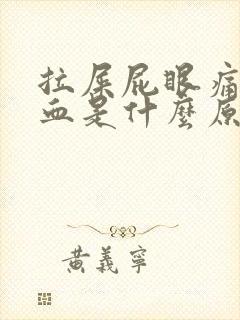 拉屎屁眼痛
血是什麼原
黃義寧